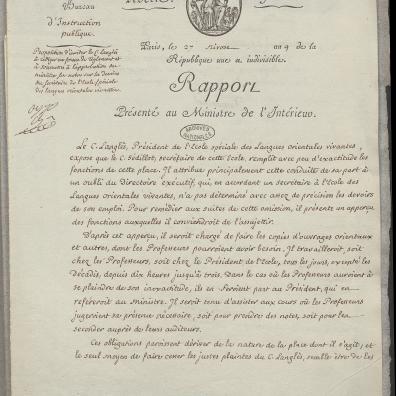 Bureau
d'Instruction
publique.
Paris, le 27 nivose an 9 de la
République une et indivisible.
Rapport
Présenté au Ministre de l'Intérieur.
ARCHIVES NATIONALES
Le C. Langlès, Président de l'Ecole spéciale des Langues orientales vivantes,
expose que le C. Sédillot, secrétaire de cette Ecole, remplit avec peu d'exactitude les
fonctions de cette place. Il attribue principalement cette conduite de sa part à
un oubli du Directoire exécutif, qui, en accordant un secrétaire à l'Ecole des
Langues orientales vivantes, n'a pas déterminé avec assez de précision les devoirs
de son emploi. Pour remédier aux suites de cette omission, il présente un apperçu
des fonctions auxquelles il conviendroit de l'assujettir.
D'après cet apperçu, il seroit chargé de faire les copies d'ouvrages orientaux
et autres, dont les Professeurs pourroient avoir besoin. Il travailleroit, soit
chez les Professeurs, soit chez le Président de l'Ecole, tous les jours, excepté les
Décadis, depuis dix heures jusqu'à trois. Dans le cas où les Professeurs auroient à
se plaindre de son inexactitude, ils en feroient part au Président, qui en
référeroit au ministre. Il seroit tenu d'assister aux cours où les Professeurs
jugeroient sa présence nécessaire, soit pour prendre des notes, soit pour les
seconder auprès de leurs auditeurs.
Ces obligations paroissent dériver de la nature de la place dont il s'agit; et
le seul moyen de faire cesser les justes plaintes du C. Langlès, semble être de les